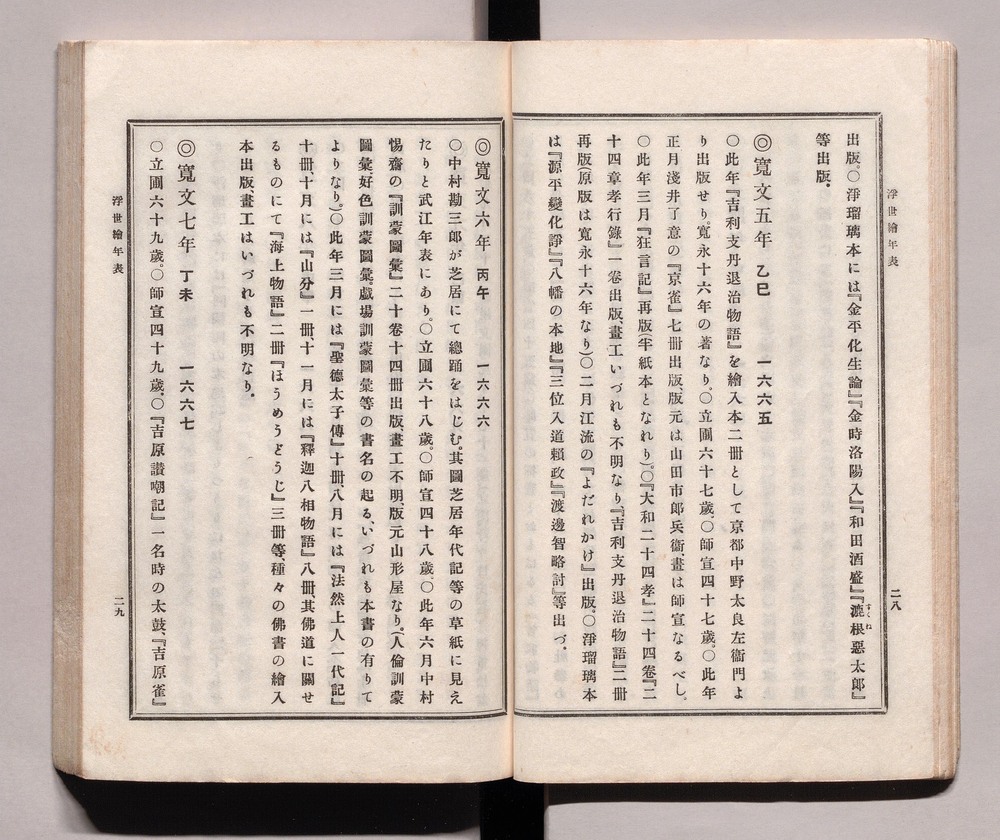 浮世繪年表
二八
出版。〇淨瑠璃本には『金平化生論』『金時洛陽入』『和田酒盛』『漉根惡太郎』
すくね
等出版。
◎寬文五年 乙巳 一六六五
〇此年『吉利支丹退治物語』を繪入本二冊として京都中野太良左衞門よ
り出版せり。寬永十六年の著なり。〇立圃六十七歲。〇師宣四十七歲。〇此年
正月淺井了意の『京雀』七冊出版、版元は山田市郎兵衞、畫は師宣なるべし。
〇此年三月『狂言記』再版(半紙本となれり)。〇『大和二十四孝』二十四卷『二
十四章孝行錄』一卷出版、畫工いづれも不明なり『吉利支丹退治物語』二冊
再版(原版は寬永十六年なり)〇二月江流の『よだれかけ』出版。〇淨瑠璃本
は『源平變化諍』『八幡の本地』『三位入道賴政』『渡邊智略討』等出づ。
◎寬文六年 丙午 一六六六
〇中村勘三郎が芝居にて總踊をはじむ。其圖芝居年代記等の草紙に見え
たりと武江年表にあり。〇立圃六十八歲。〇師宣四十八歲。〇此年六月中村
惕齋の『訓蒙圖彙』二十卷十四冊出版畫工不明、版元山形屋なり。(人倫訓蒙
圖彙、好色訓蒙圖彙、戲場訓蒙圖彙等の書名の起る、いづれも本書の有りて
よりなり。)〇此年三月には『聖德太子傳』十冊、八月には『法然上人一代記』
十冊、十月には『山分』一冊、十一月には『釋迦八相物語』八冊、其佛道に關せ
るものにて『海上物語』二冊『ほうめうどうじ』三冊等、種々の佛書の繪入
本出版、畫工はいづれも不明なり。
◎寬文七年 丁未 一六六七
〇立圃六十九歲。〇師宣四十九歲。〇『吉原讃嘲記』一名時の太鼓、『吉原雀』
浮世繪年表
二九